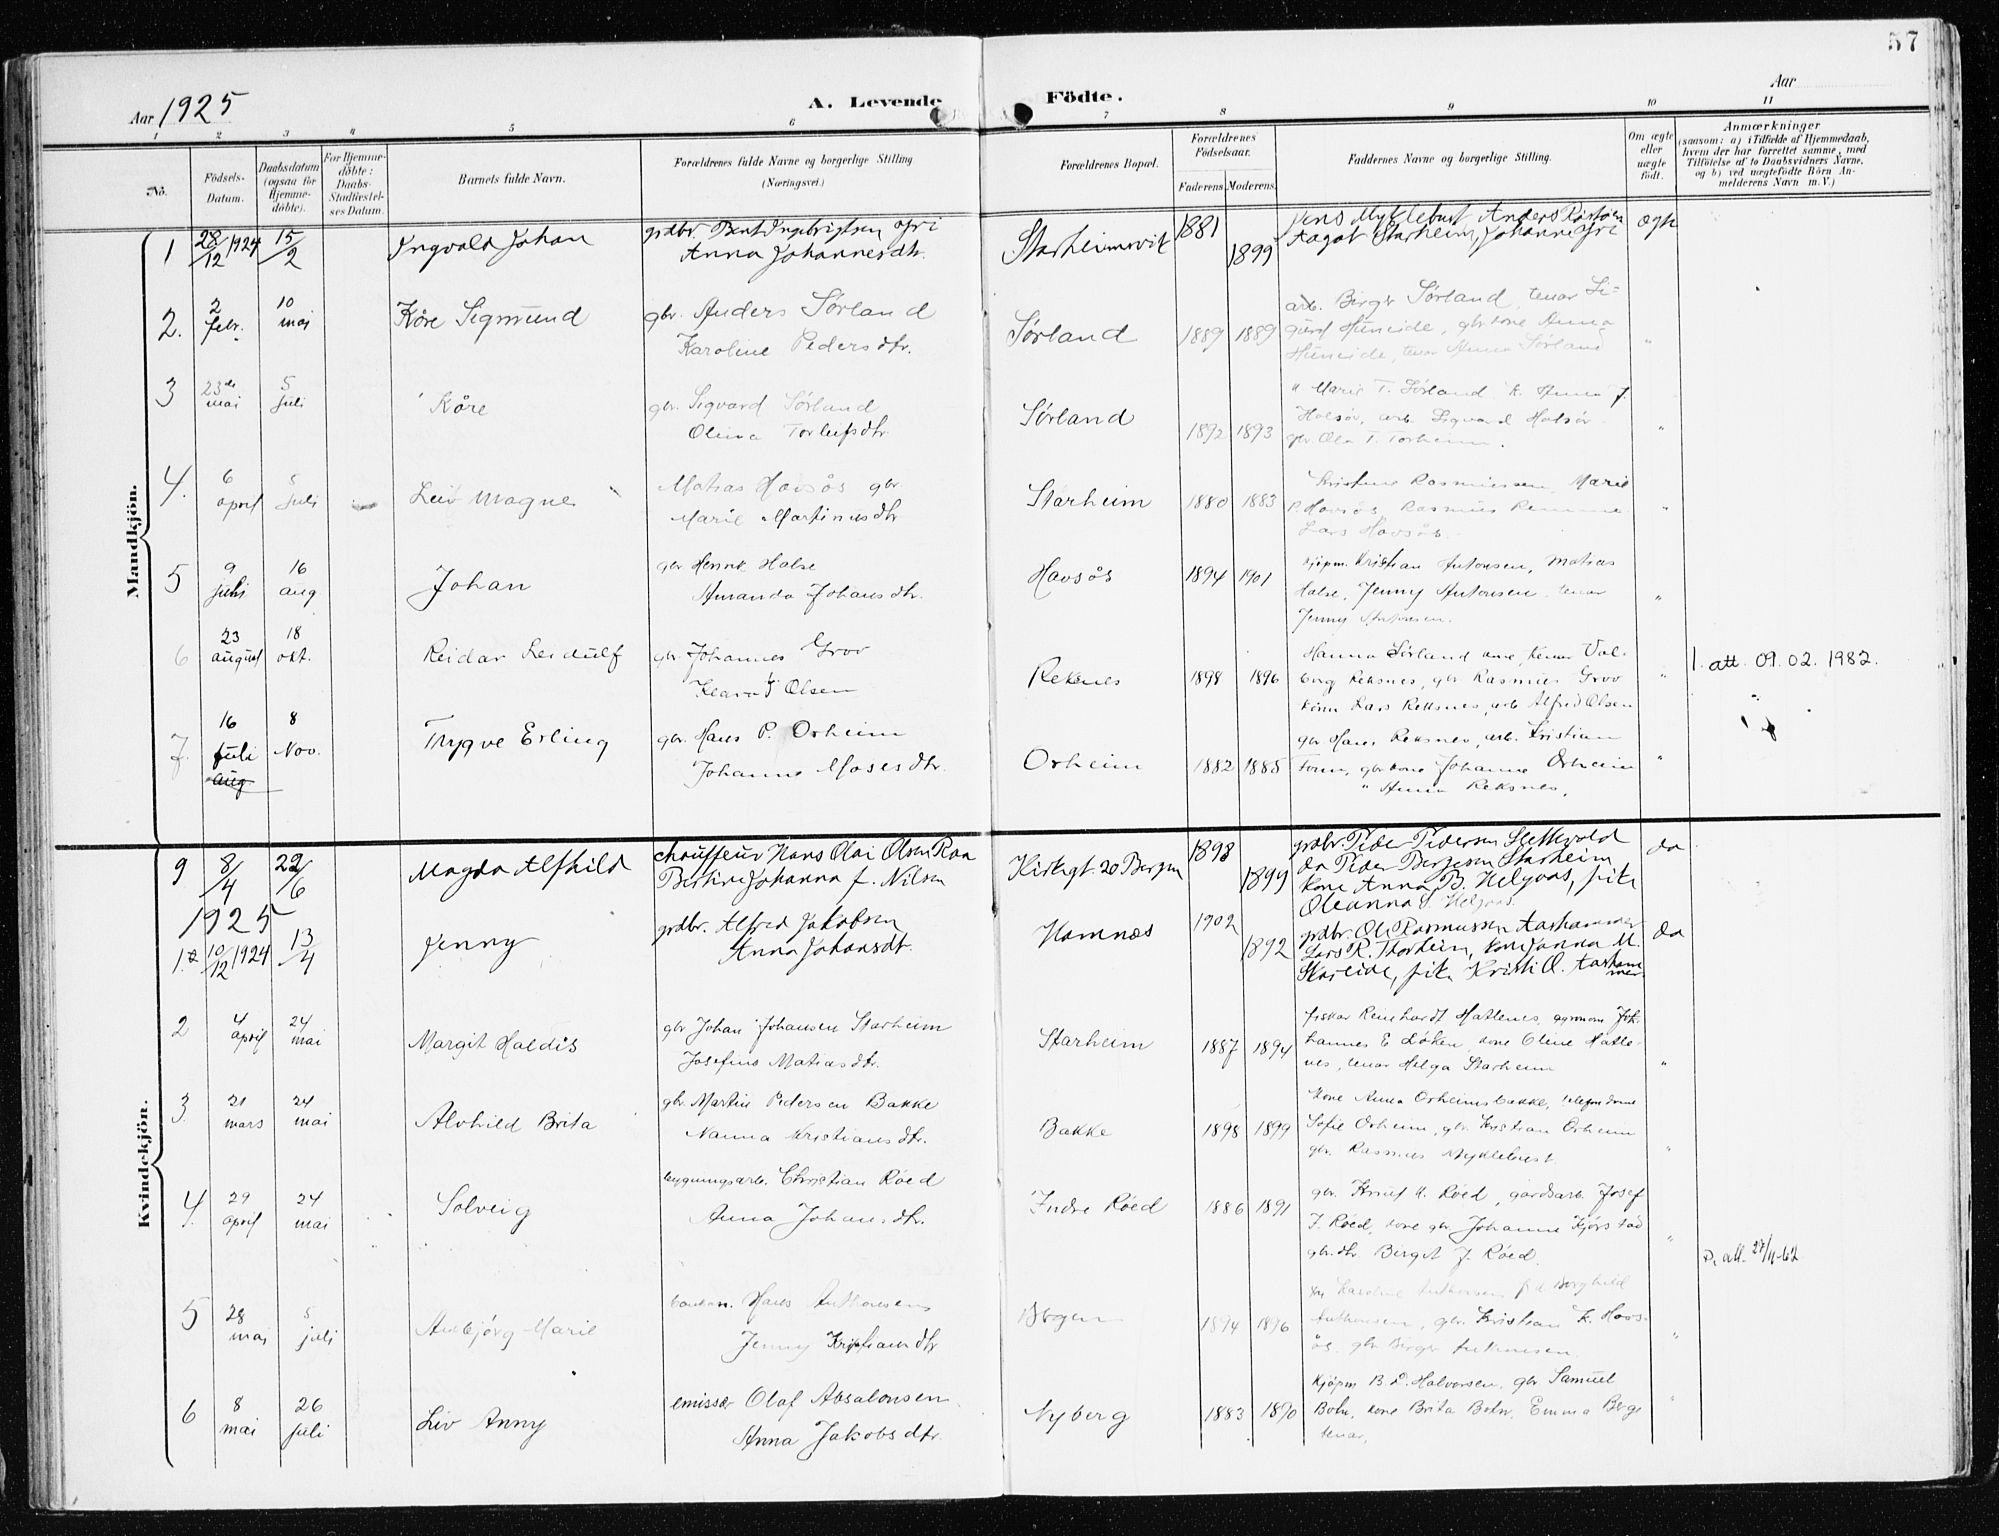 57
Aar 1925
A. Levende Födte.
Aar
1 2 3 4 5 6 7 8 9 10 11
No.
Födsels-Datum.
Daabsdatum (ogsaa for Hjemme-döbte).
For Hjemme-döbte: Daabs-Stadfæstel-ses Datum.
Barnets fulde Navn.
Forældrenes fulde Navne og borgerlige Stilling (Næringsvei.)
Forældrenes Bopæl.
Forældrenes Födselsaar.
Faderens. Moderens.
Faddernes Navne og borgerlige Stilling.
Om ægte eller uægte födt.
Anmærkninger
(saasom: a) i Tilfælde af Hjemmedaab, hvem der har forrettet samme, med Tilföielse af to Daabsvidners Navne, og b) ved uægtefödte Börn An-melderens Navn m. V.)
Mandkjön.
1 28/12 1924 15/2 Ingvald Johan
Anna Johannesdtr. Starheimsvik 1881 1899
Jens Myklebust Anders
Starheim, Johanne
2. 2 febr. 10 mai Kåre Sigmund gbr. Anders Sørland
Karoline Pedersdtr. Sørland 1889 1889
arb. Birger Sørland, tenar Si-
gurd Huneide, gbr kone Anna
Huneide, tenar Anna Sørland "
3 23de mai 5 juli Kåre gbr. Sigvard Sørland
Olina Torleifsdtr. Sørland 1892 1893
" Marie T. Sørland
arb. Sigvard
gbr Ola T. Torheim. "
4. 6 april 5 juli Leiv Magne Matias Havsøs gbr.
Marie Martinusdtr Starheim 1880 1883
Kristine Rasmussen, Marie
P. Havsøs, Rasmus
Lars Havsøs. "
5 9 juli 16 aug Johan gbr Henrik Halse
Amanda Johansdtr. Havsøs 1894 1901
kjøpm. Kristian Antonsen, Matias
Halse, Jenny Antonsen, tenar
Jenny Antonsen. "
6 23 august 18 okt. Reidar Leidulf gbr. Johannes Grov
Klara Olsen Reksnes 1898 1896
Hanna Sørland kone, tenar Val-
borg Reksnes, gbr Rasmus Grov
Lars Reksnes, arb Alfred Olsen "
1. att. 09.02.1982.
7. 16 juli aug. 8 Nov. Trygve Erling gbr. Hans P. Orheim
Johanne Mosesdtr. Orheim 1882 1885
gbr Hans Reksnes, arb. Kristian
gbr kone Johanne Orheim
" Anna Reksnes. "
Kvindekjön.
9 8/4 22/6 Magda Alfhild chauffeur Hans Olai Olsen
Johanna f. Nilsen 20 Bergen 1898 1899
grdbr. Peder Pedersen
do Peder Starheim
kone Anna B. Helgaas, pike
Oleanna Helgaas do
1925
1. 10/12 1924 13/4 Jenny grdbr. Alfred Jakobsen
Anna Johansdt. Hamnes 1902 1892
grdbr. Ole Rasmussen Aarhammer
Lars R. Thorheim, kone Janna M.
Skareide, pike Kristi O. Aarham-
mer do
2 4 april 24 mai Margit Haldis gbr Johan Johansen Starheim
Josefine Matiasdtr. Starheim 1887 1894
fiskar Reinhardt Hatlenes, agronom Joh-
hannes E Løken, kone Oline Hatle-
nes, tenar Helga Starheim "
3. 21 mars 24 mai Alvhild Brita gbr. Martin Pedersen Bakke
Nanna Kristiansdtr. Bakke 1898 1899
kone Anna Orheimsbakke,
Sofie Orheim, gbr. Kristian Orheim
gbr. Rasmus Myklebust. "
4. 29 april 24 mai Solveig bygningsarb. Christian Røed
Anna Johansdtr. Indre Røed 1886 1891
gbr. Knut K. Røed, gardsarb. Josef
J. Røed, kone gbr. Johanne Kjørstad
gbr.dtr. Birgit J. Røed. "
P. att. 27/11-62
5 28 mai 5 juli Anbjørg Marie Hans Anthonsen
Jenny Kristiansdtr Bergen 1894 1896
Karoline Anthonsen Borghild
Anthonsen, gbr. Kristian K. Havs-
øs, gbr Birger Anthonsen. "
6 8 mai 26 juli Liv Anny emissær Olaf Absalonsen
Anna Jakobsdtr. Nyberg 1883 1890
kjøpm B. D. Halvorsen, gbr Samuel
kone Brita Emma Berge
tenar. "